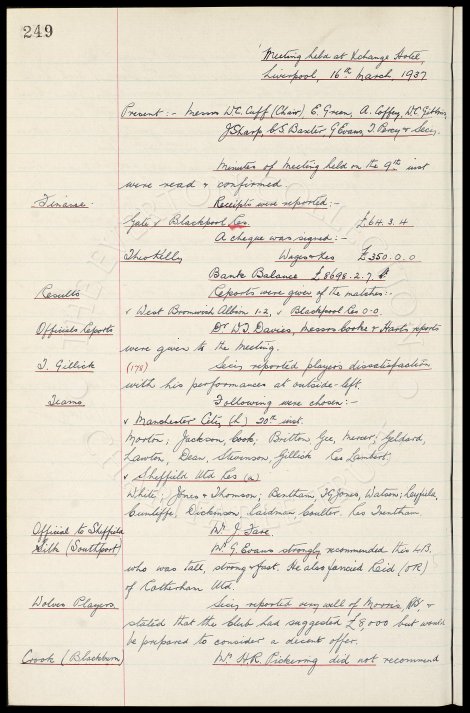 249
Meeting held at Xchange Hotel,
Liverpool, 16th March 1937
Present :- Messrs W.C. Cuff (Chair) E. Green, A. Coffey, W.C. Gibbins,
J. Sharp, C.S. Baxter, G. Evans, T. Percy & Secy.
Minutes of Meeting held on the 9th inst
were read & confirmed
Finance. Receipts were reported :-
Gate v Blackpool Res. £64.3.4
A cheque was signed :-
Theo Kelly Wages & Res £350.0.0
Bank Balance £8698.2.7
Results Reports were given of the matches :-
v West Bromwich Albion 1-2, v Blackpool Res 0-0.
Officials Reports Dr W.J. Davies, Messrs Cooke & Harts reports
were given to the Meeting.
T. Gillick (178) Secy. reported players dissatisfaction
with his performances at outside-left.
Teams Following were chosen :-
v Manchester City (h) 20th inst.
Morton; Jackson, Cook; Britton, Gee, Mercer; Geldard,
Lawton, Dean, Stevenson, Gillick Res Lambert.
v Sheffield Utd Res (a)
White; Jones & Thomson; Bentham T.G. Jones, Watson; Leyfield,
Cunliffe, Dickinson, Laidman, Coulter. Res Trentham.
Official to Sheffield Mr J. Fare.
Silk (Southport) Mr G. Evans strongly recommended this L.B.
who was tall, strong & fast. He also fancied Reid (OR)
of Rotherham Utd.
Wolves Players. Secy. reported very well of Morris, &
stated that the Club had suggested £8000 but would
be prepared to consider a decent offer.
Crook (Blackburn) Mr H.R. Pickering did not recommend